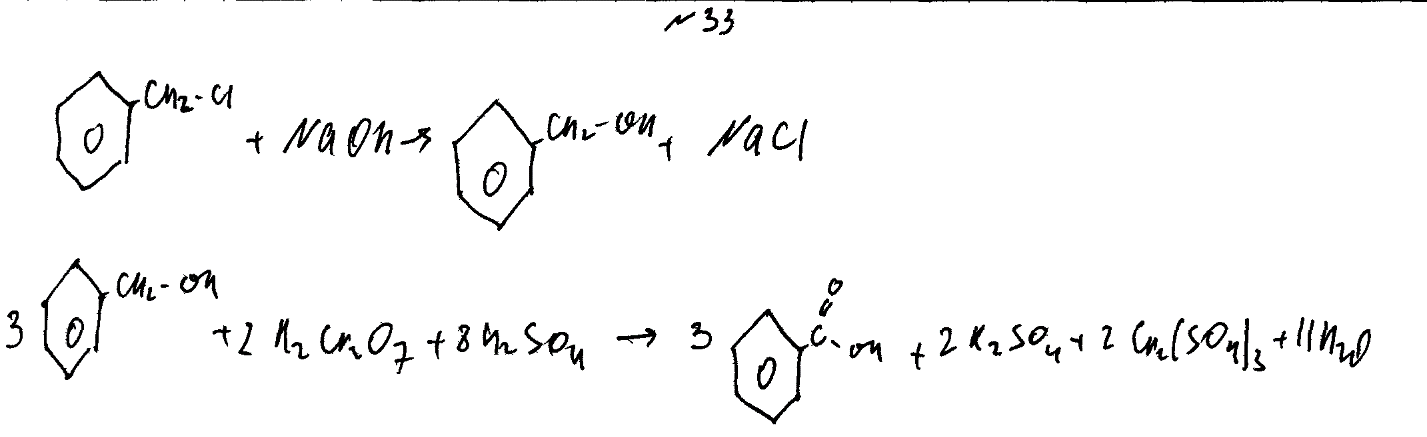 ~33
CH₂-Cl + NaOH → CH₂-OH + NaCl
3 CH₂-OH + 2 K₂Cr₂O₇ + 8 H₂SO₄ → 3 C=O-OH + 2 K₂SO₄ + 2 Cr₂(SO₄)₃ + 11H₂O